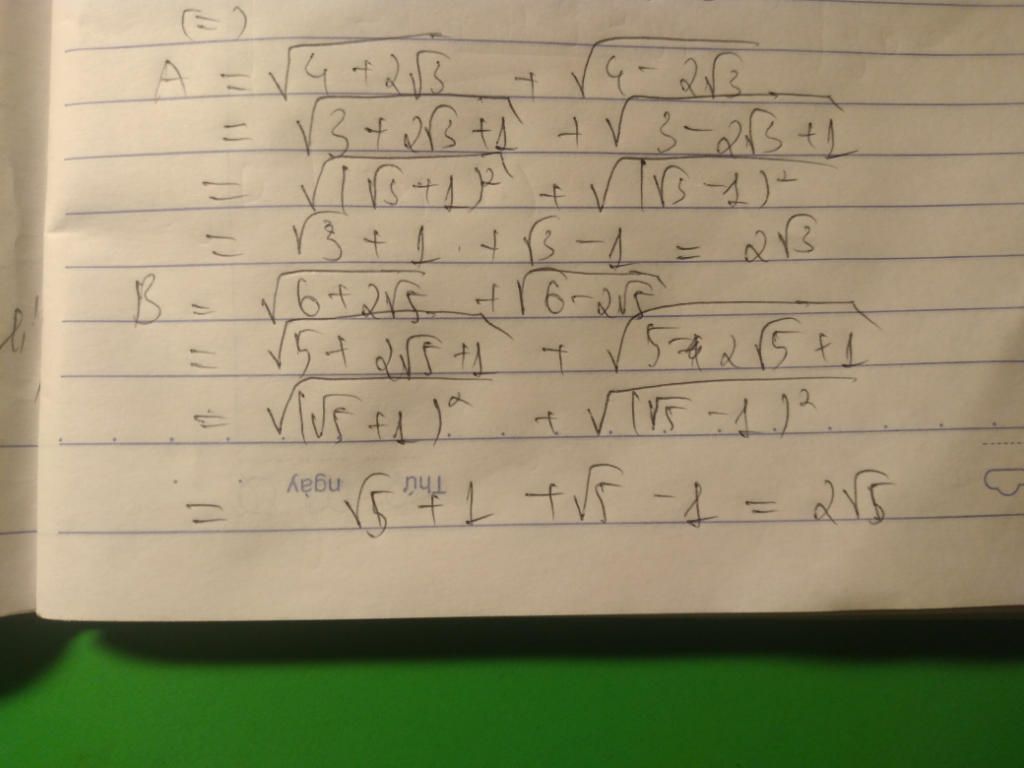 (=)
A = √(4 + 2√3) + √(4 - 2√3)
= √(3 + 2√3 + 1) + √(3 - 2√3 + 1)
= √((√3 + 1)²) + √((√3 - 1)²)
= √3 + 1 + √3 - 1 = 2√3
B = √(6 + 2√5) + √(6 - 2√5)
= √(5 + 2√5 + 1) + √(5 - 2√5 + 1)
= √((√5 + 1)²) + √((√5 - 1)²)
Thứ ngày
= √5 + 1 + √5 - 1 = 2√5